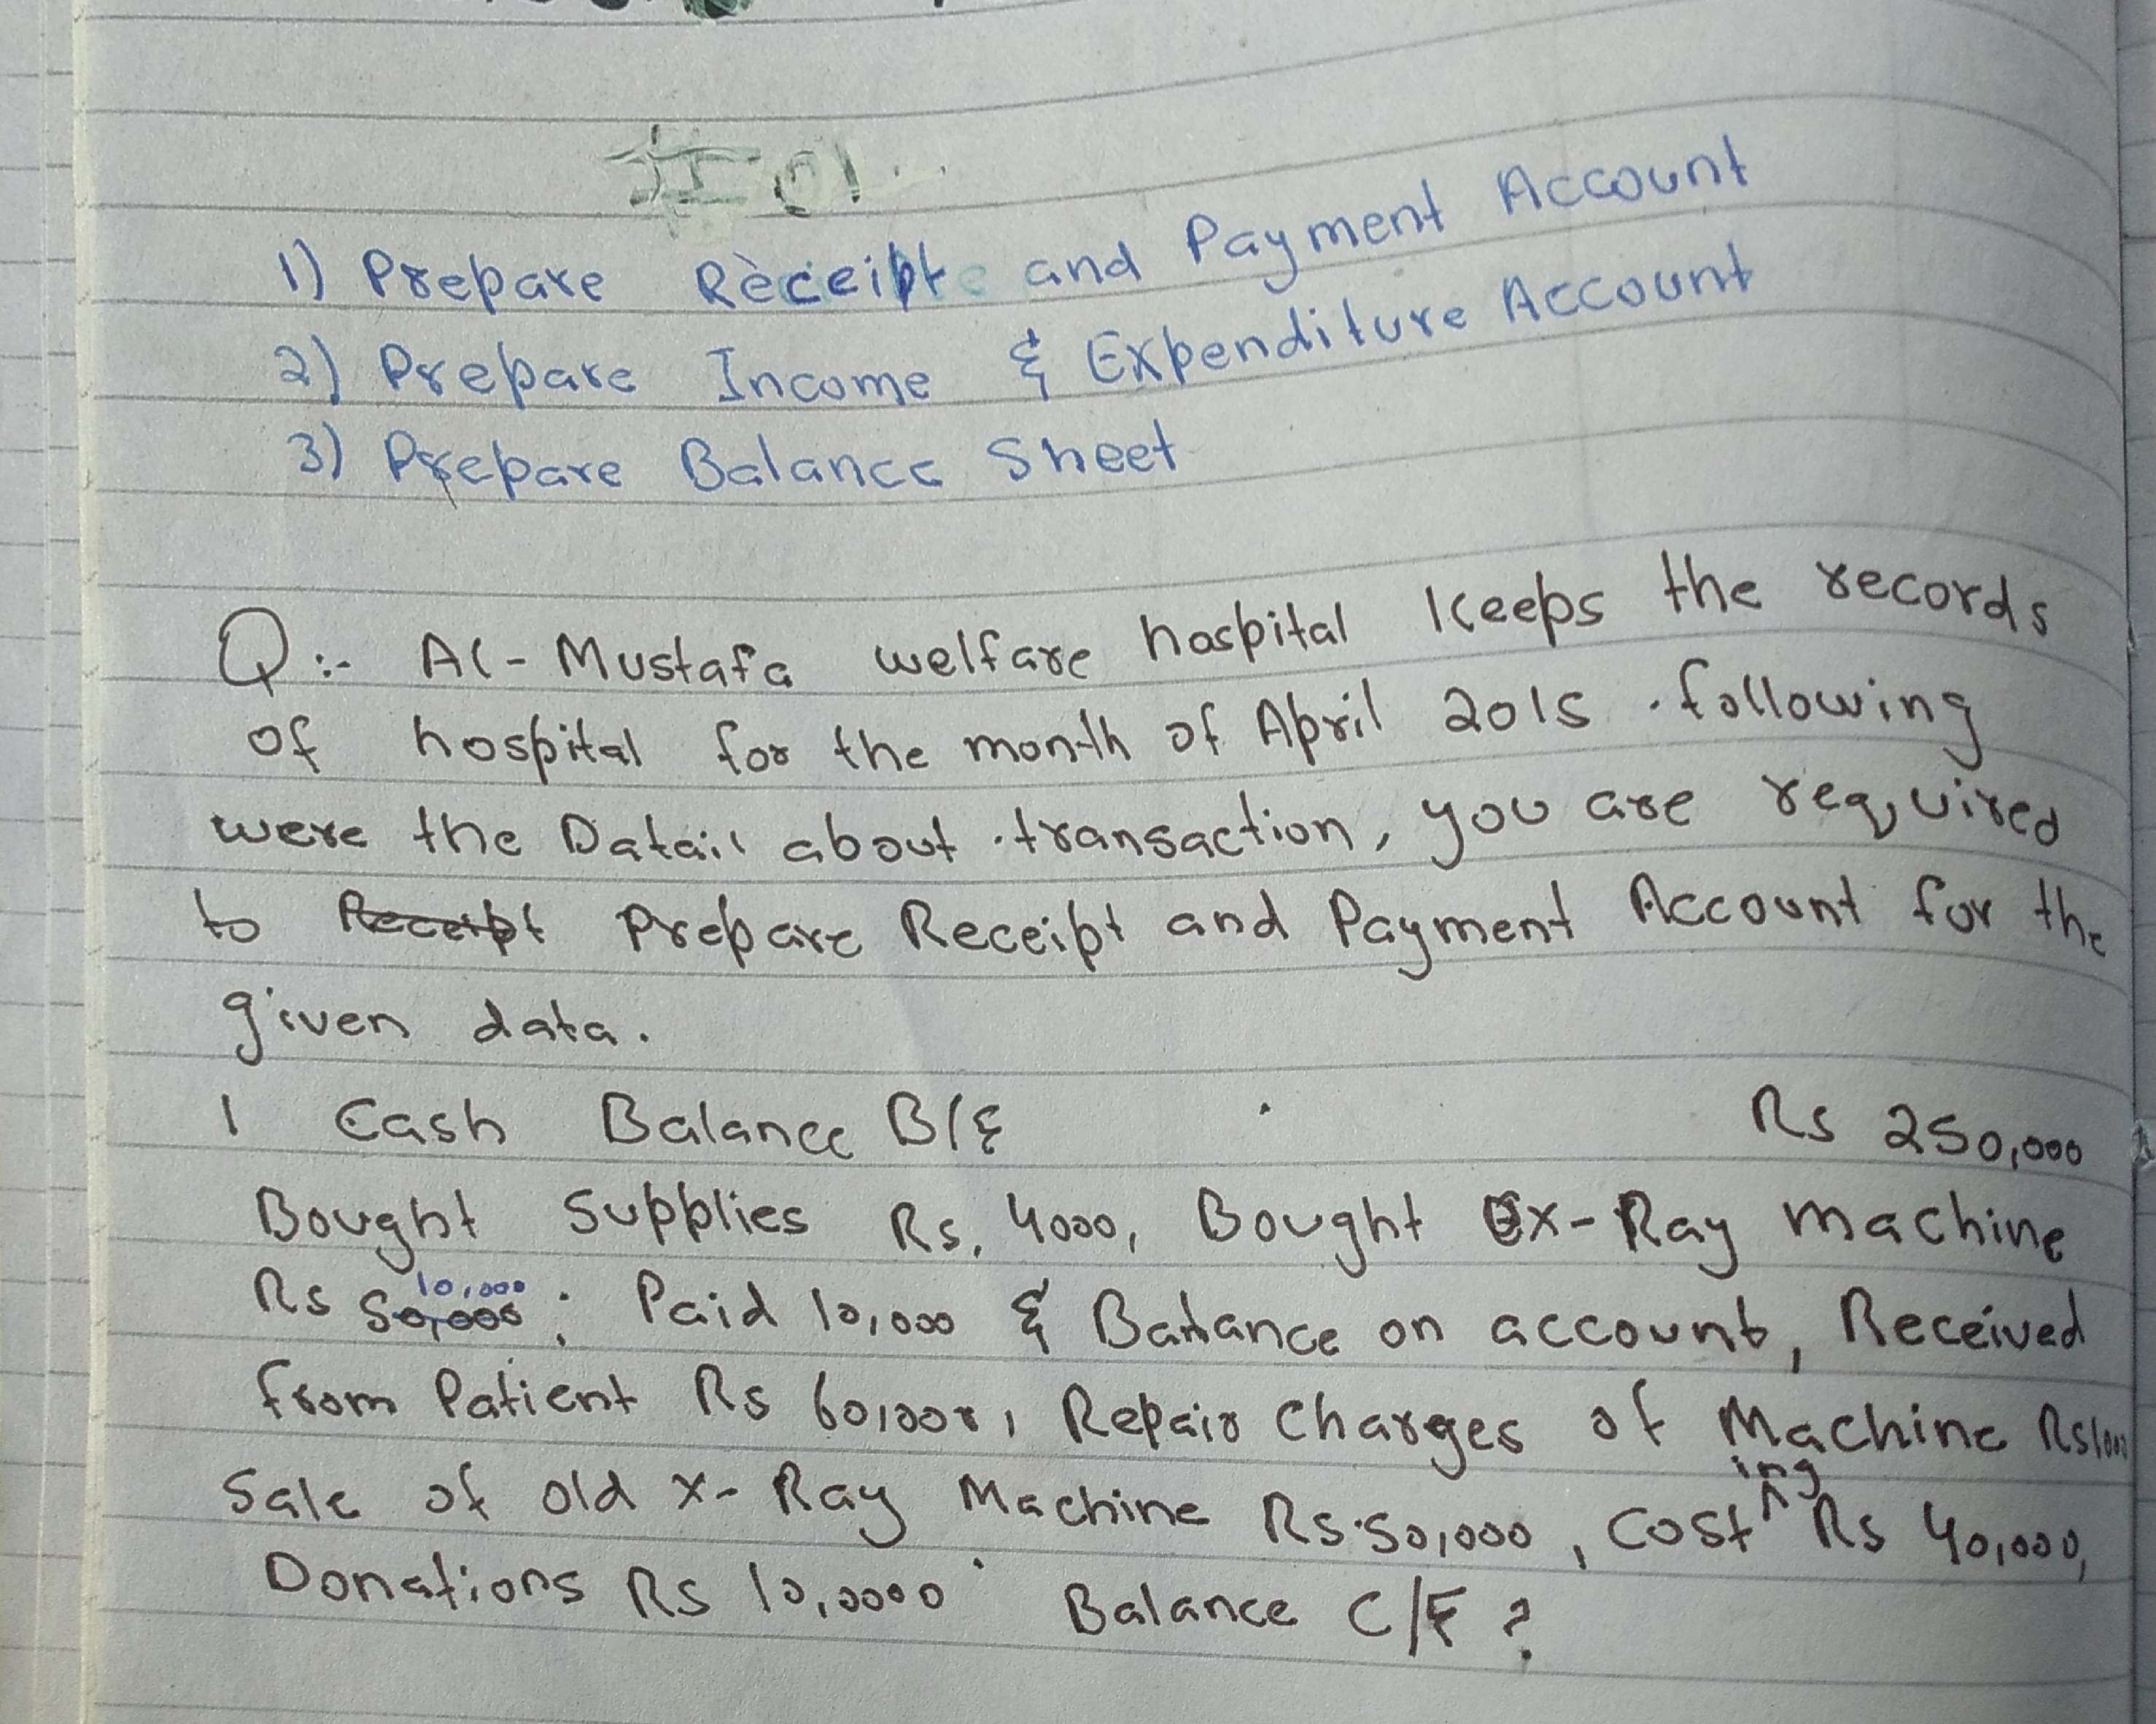 # 01
1) Prepare Receipt and Payment Account
2) Prepare Income & Expenditure Account
3) Prepare Balance Sheet
Q:- Al-Mustafa welfare hospital keeps the records
of hospital for the month of April 2015. following
were the Datail about transaction, you are required
to Receipt Prepare Receipt and Payment Account for the
given data.
1 Cash Balance B/F Rs 250,000
Bought Supplies Rs, 4000, Bought Ex-Ray machine
Rs 50,000 10,000; Paid 10,000 & Balance on account, Received
from Patient Rs 60,000, Repair Charges of Machine
Sale of old X-Ray Machine Rs.50,000, Costing Rs 40,000,
Donations Rs 10,0000 Balance C/F ?